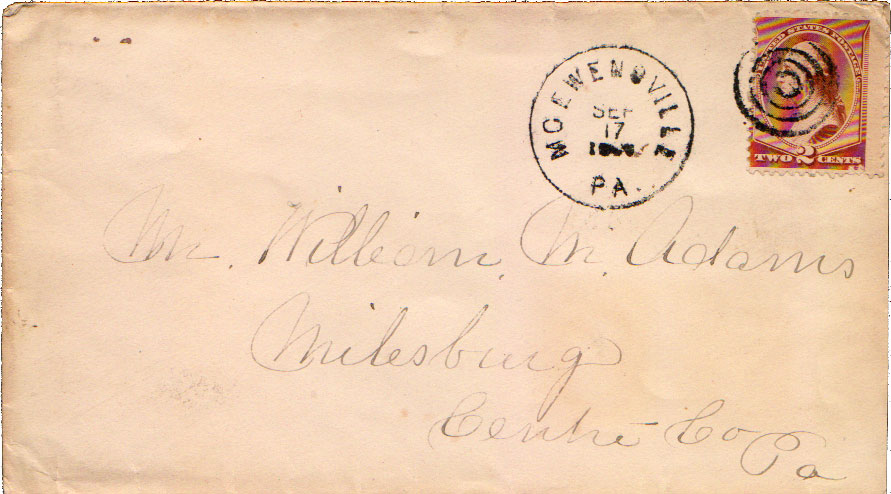 UNITED STATES POSTAGE
TWO 2 CENTS
MCEWENSVILLE
SEP
17
PA.
Mr. William M. Adams
Milesburg
Centre Co
Pa